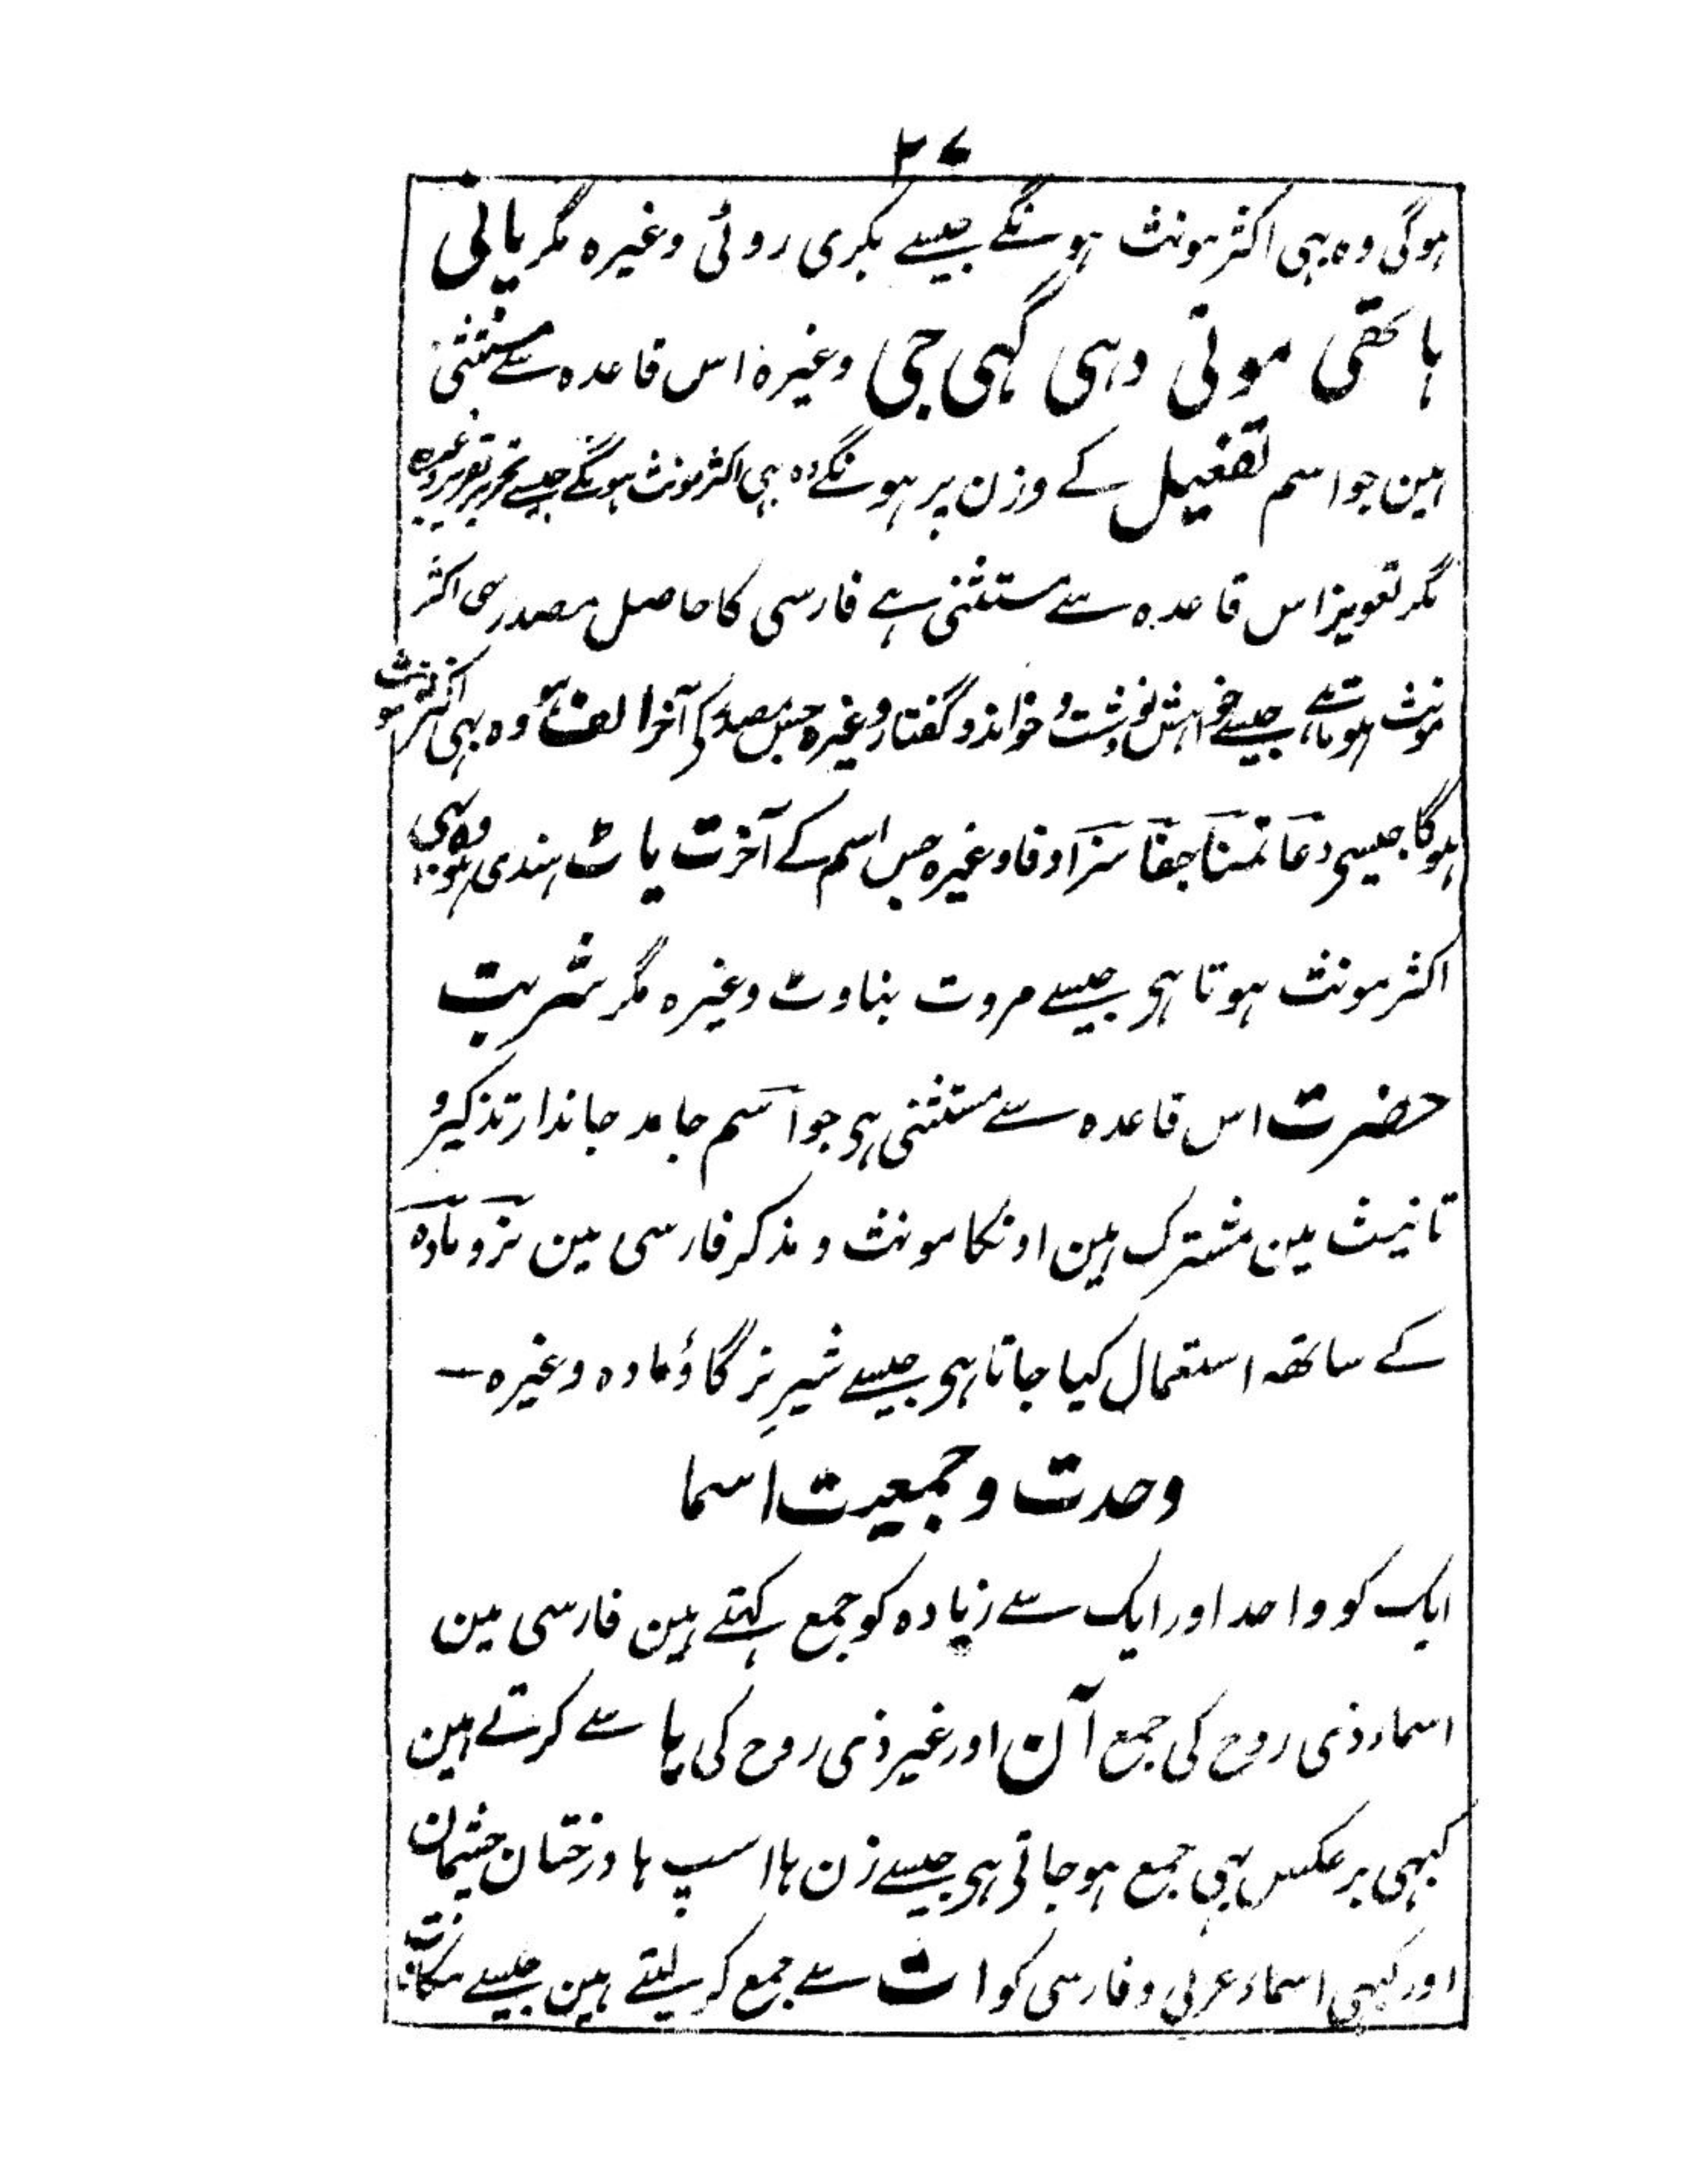 ۲۷
ہوگی وہ بہی اکثر مونث ہونگے جیسے بکری روٹی وغیرہ مگر پانی
ہاتھی موتی دہی گہی جی وغیرہ اس قاعدہ سے مستثنی
ہین جو اسم تفعیل کے وزن پر ہونگے وہ بہی اکثر مونث ہونگے جیسے تحریر تقریر وغیرہ
مگر تعویز اس قاعدہ سے مستثنی ہے فارسی کا حاصل مصدر بہی اکثر
مونث ہوتا ہے جیسے خواہش نوشت و خواند و گفتار وغیرہ جس مصدر کی آخر الف ہو وہ بہی اکثر مونث
ہوگا جیسی دعا تمنا جفا سزا وفا وغیرہ جس اسم کے آخر ت یا ٹ ہندی ہو وہ بہی
اکثر مونث ہوتا ہی جیسے مروت بناوٹ وغیرہ مگر شربت
حضرت اس قاعدہ سے مستثنی ہی جو اسم جامد جاندار تذکیر و
تانیث مین مشترک ہین اونکا مونث و مذکر فارسی مین نر و مادہ
کے ساتھہ استعمال کیا جاتا ہی جیسے شیرِ نر گاؤ مادہ وغیرہ ۔
وحدت و جمعیت اسما
ایک کو واحد اور ایک سے زیادہ کو جمع کہتے ہین فارسی مین
اسماء ذی روح کی جمع آن اور غیر ذی روح کی ہا سے کرتے ہین
کبہی برعکس بہی جمع ہو جاتی ہی جیسے زن ہا اسپ ہا درختان چشمان
اور کبہی اسماء عربی و فارسی کو ات سے جمع کر لیتے ہین جیسے مکانات